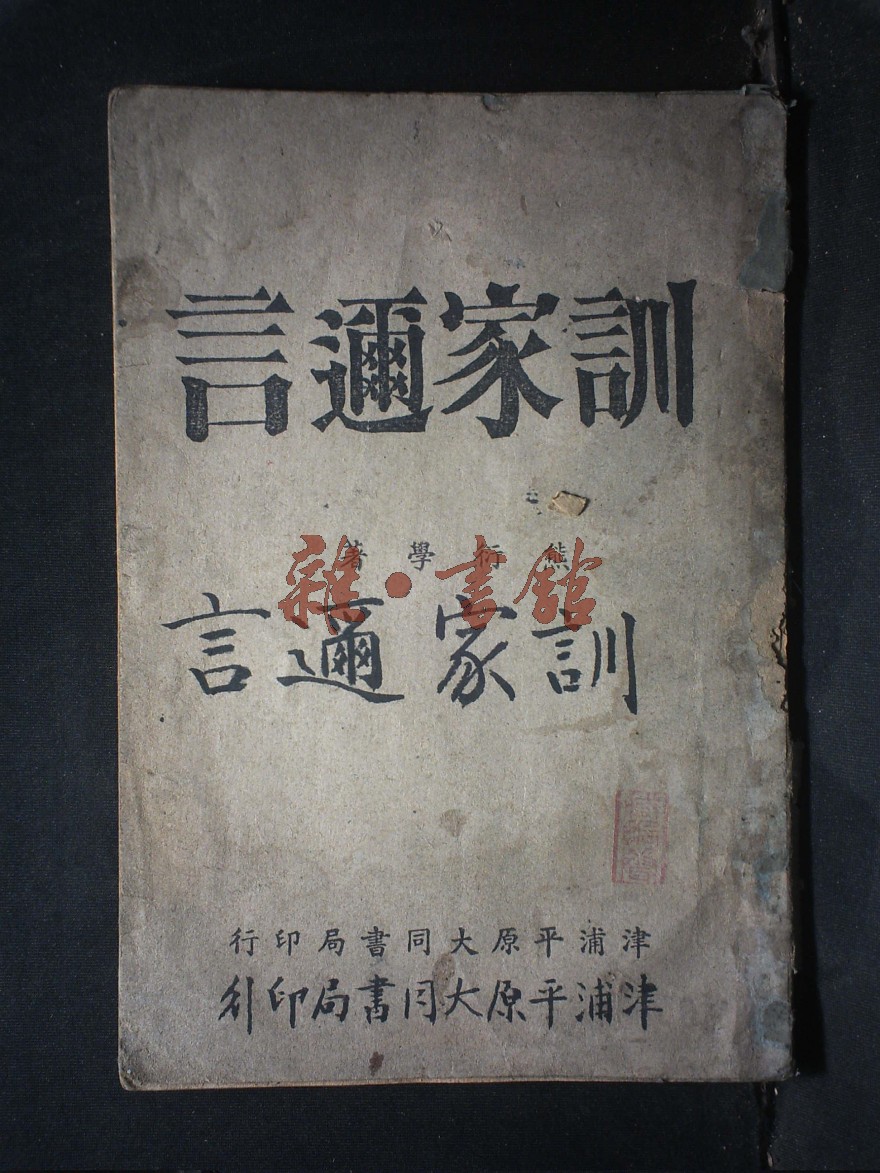 訓家邇言
熊衍學著
雜·書館
訓家邇言
津浦平原大同書局印行
津浦平原大同書局印刋